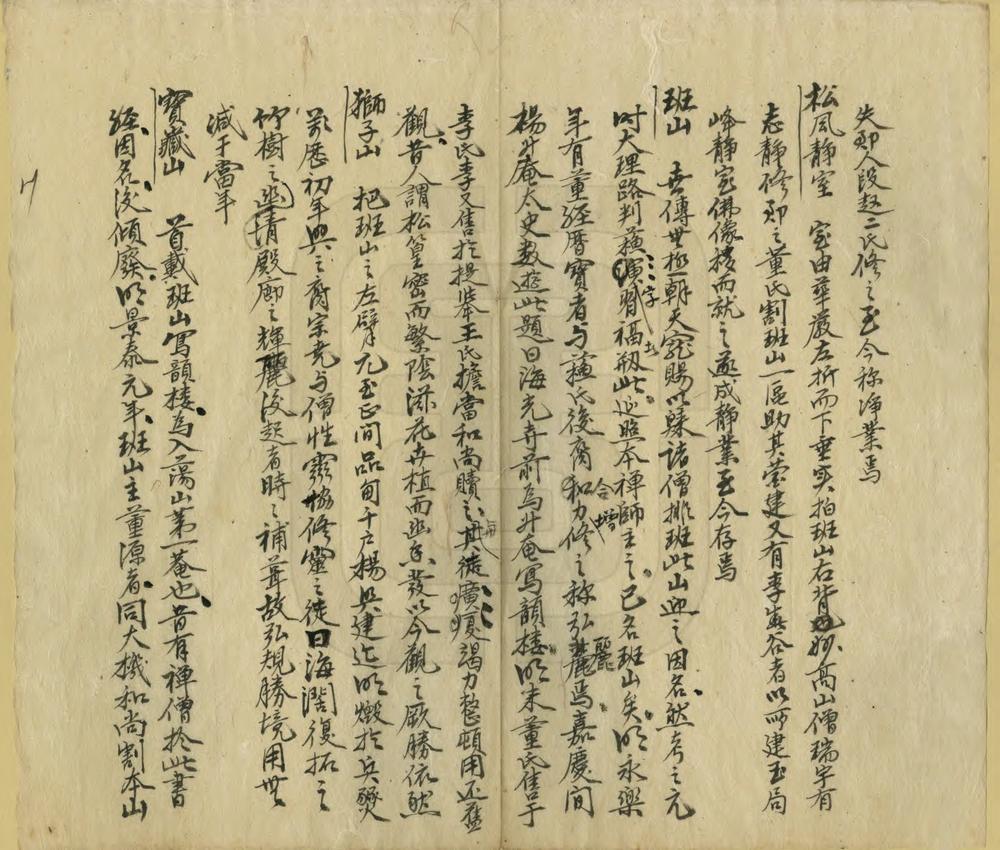 失那人段赵二氏修之至今称淨業焉
松風靜室　室由華嚴左折而下垂实拍班山右背也妙高山僧瑞宇有
志靜修郡之董氏割班山一區助其营建又有李嵓谷者以所建玉局
峰靜室佛像移而就之遂成靜業至今存焉
班山　世傳世極朝天寵賜以騾諸僧排班此山迎之因名然考之元
时大理路判蘓演習字福刱此延照本禅師主之已名班山矣明永樂
年有董經曆寶者与蘓氏後裔和合力增修之称弘麗焉嘉慶间
楊升庵太史数遊此題曰海光寺前为升庵寫韻楼明末董氏售于
李氏李又售於提举王氏擔當和尚贖之其徒廣廈竭力整頓用还舊
觀昔人謂松篁密而繁陰滋花卉植而幽香發以今觀之厥勝依然
獅子山　把班山之左臂元至正间品甸千户楊興建迄明燬於兵燹
萬曆初年興之裔宗尭与僧性靈協修靈之徒曰海濶復拓之
竹樹之幽倩殿廊之輝麗後起者時之補葺故弘規勝境用世
減于當年
寶藏山　首載班山寫韻楼为入蕩山第一菴也昔有禅僧於此書
經因名後傾廢明景泰元年班山主董源者同大機和尚割本山